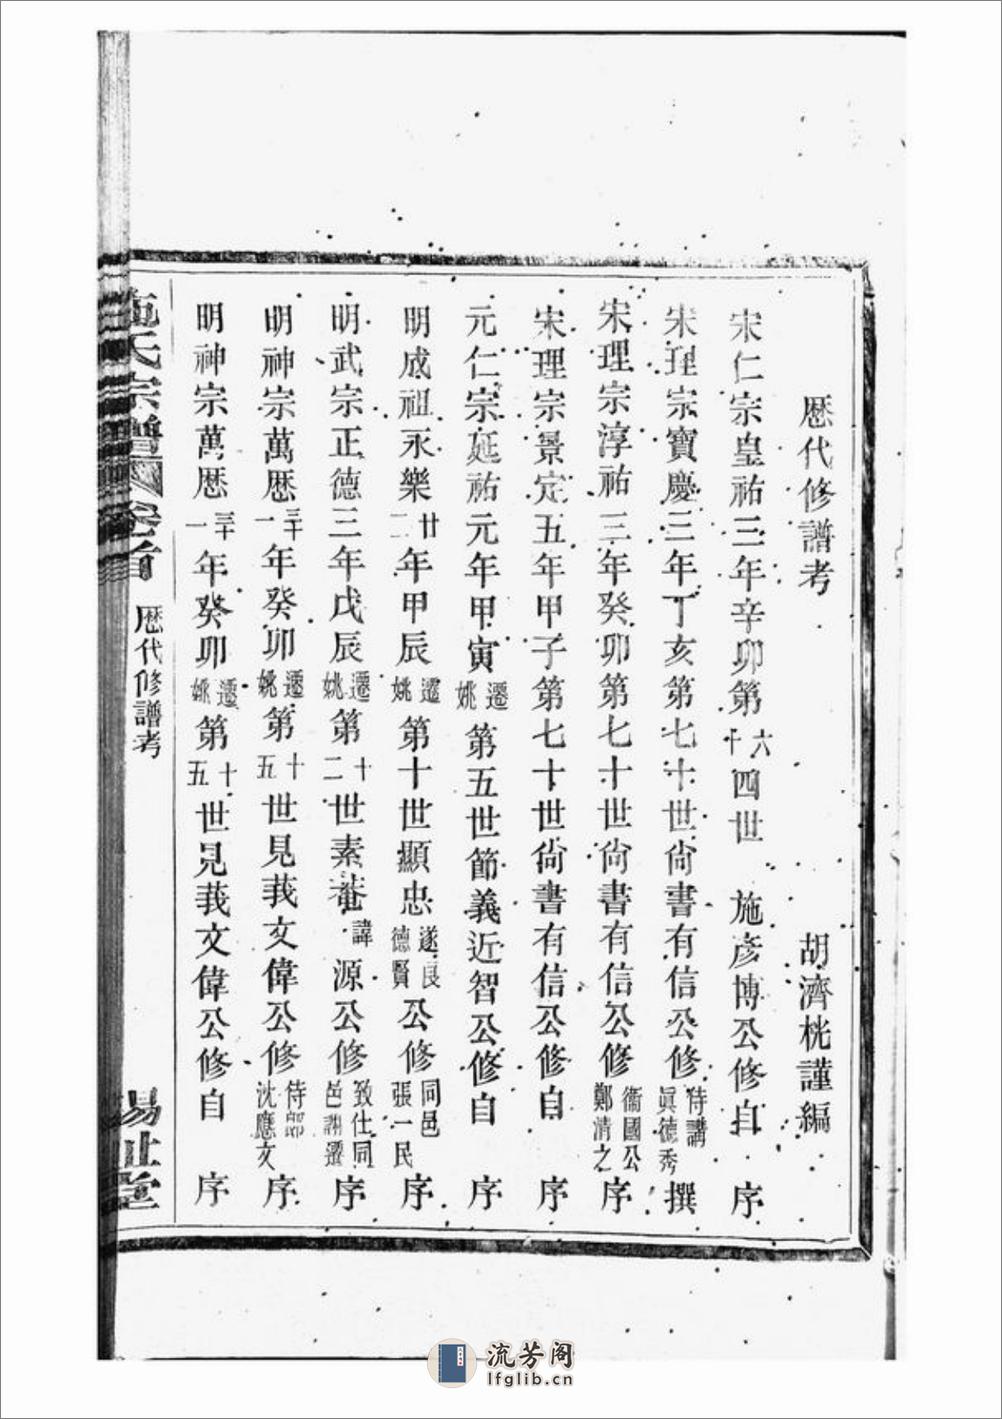 歷代修譜考
胡濟桄謹編
宋仁宗皇祐三年辛卯第六十四世 施彥博公修自序
宋理宗寶慶三年丁亥第七十世尙書有信公修侍講眞德秀撰
宋理宗淳祐三年癸卯第七十世尙書有信公修衞國公鄭清之序
宋理宗景定五年甲子第七十世尙書有信公修自序
元仁宗延祐元年甲寅遷姚第五世節義近智公修自序
明成祖永樂廿二年甲辰遷姚第十世顯忠遂良德賢公修同邑張一民序
明武宗正德三年戊辰遷姚第十二世素菴諱源公修致仕同邑謝遷序
明神宗萬歷三十一年癸卯遷姚第十五世見莪文偉公修侍郎沈應文序
明神宗萬歷三十一年癸卯遷姚第十五世見莪文偉公修自序
施氏宗譜 卷首 歷代修譜考
流芳阁
lfglib.cn